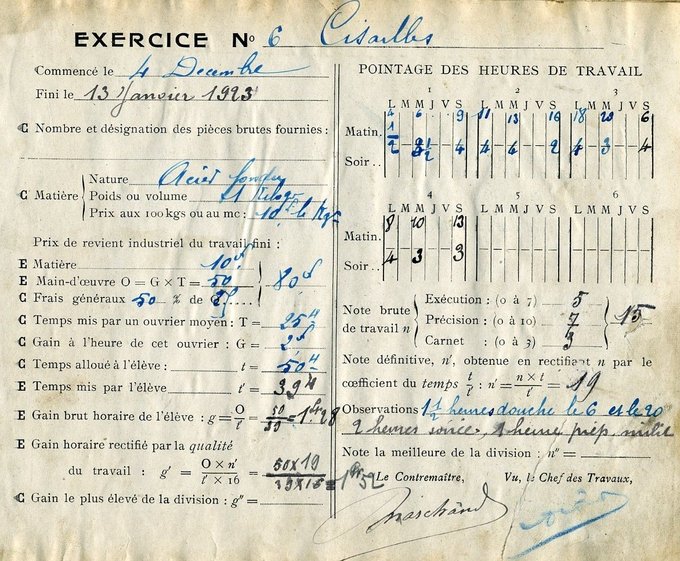 EXERCICE No 6 Cisailles
Commencé le 4 Decembre
Fini le 13 Janvier 1923
C Nombre et désignation des pièces brutes fournies :
C Matière
Nature Acier fondu
Poids ou volume 1 Kilogr
Prix aux 100 kgs ou au mc : 10f le Kgr
Prix de revient industriel du travail fini :
E Matière 10f
E Main-d'œuvre O = G × T = 50
80f
C Frais généraux 50 % de
C Temps mis par un ouvrier moyen : T = 25H
C Gain à l'heure de cet ouvrier : G = 2f
C Temps alloué à l'élève : t = 50H
E Temps mis par l'élève t' = 39H
E Gain brut horaire de l'élève : g = O/t' = 50/39 = 1fr28
E Gain horaire rectifié par la qualité
du travail : g' = O × n'/t' × 16 = 50x19/39x16 = 1fr52
C Gain le plus élevé de la division : g" =
POINTAGE DES HEURES DE TRAVAIL
1 2 3
L M M J V S L M M J V S L M M J V S
4 6 9 11 13 16 18 20 6
Matin.
1/2 1/2 4 4 4 2 4 3 4
Soir..
4 5 6
L M M J V S L M M J V S L M M J V S
8 10 13
Matin.
4 3 3
Soir..
Note brute de travail n
Exécution : (0 à 7) 5
Précision : (0 à 10) 7
Carnet : (0 à 3) 3
15
Note définitive, n', obtenue en rectifiant n par le
cœfficient du temps t/t' : n' = n × t/t' = 19
Observations 1 1/2 heures douche le 6 et le 20
2 heures soirée, 1 heure prép. milit
Note la meilleure de la division : n" =
Le Contremaître, Vu, le Chef des Travaux,
Marchand